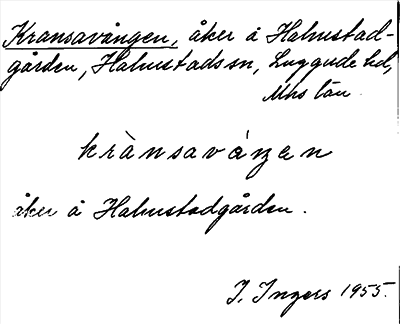 Kransavången, åker å Halmstad-
gården, Halmstads sn, Luggude hd,
Mhs län
krànsaváŋen
åker å Halmstadgården.
I. Ingers 1955.